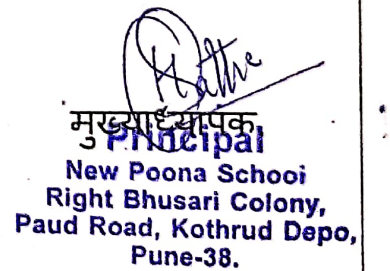 मुख्याध्यापक
Principal
New Poona School
Right Bhusari Colony,
Paud Road, Kothrud Depo,
Pune-38.